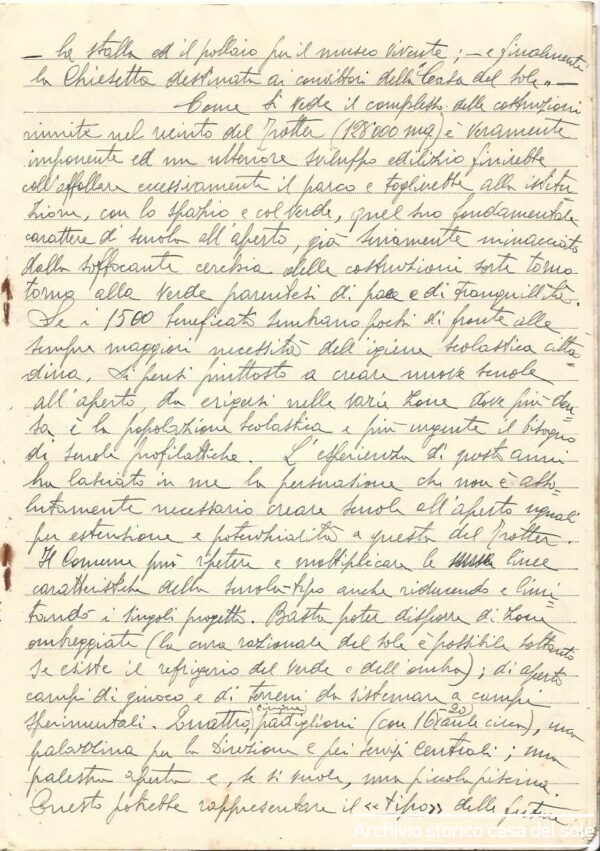 – la stalla ed il pollaio per il museo vivente; – e finalmente
la Chiesetta destinata ai convittori della "Casa del sole" –
Come si vede il complesso delle costruzioni
riunite nel recinto del Trotter (128'000 mq) è veramente
imponente ed un ulteriore sviluppo edilizio finirebbe
coll'affollare eccessivamente il parco e toglierebbe alla istitu
zione, con lo spazio e col verde, quel suo fondamentale
carattere di scuola all'aperto, già seriamente minacciato
dalla soffocante cerchia delle costruzioni sorte torno
torno alla verde parentesi di pace e di tranquillità.
Se i 1500 beneficati sembrano pochi di fronte alle
sempre maggiori necessità dell'igiene scolastica citta
dina, si pensi piuttosto a creare nuove scuole
all'aperto, da erigersi nelle varie zone dove più den=
sa è la popolazione scolastica e più urgente il bisogno
di scuole profilattiche. L'esperienza di questi anni
ha lasciato in me la persuasione che non è asso=
lutamente necessario creare scuole all'aperto uguali
per estensione e potenzialità a questa del Trotter.
Il Comune può ripetere e moltiplicare le linee
caratteristiche della scuola-tipo anche riducendo e limi=
tando i singoli progetti. Basta poter disporre di zone
ombreggiate (la cura razionale del sole è possibile soltanto
se esiste il refrigerio del verde e dell'ombra); di aperti
campi di giuoco e di terreni da sistemare a campi
sperimentali. Quattro, cinque padiglioni (con 16 20 aule circa), una
palazzina per la Direzione e pei servizi centrali; una
palestra aperta e, se si vuole, una piccola piscina.
Questo potrebbe rappresentare il «tipo» delle future
Archivio storico casa del sole